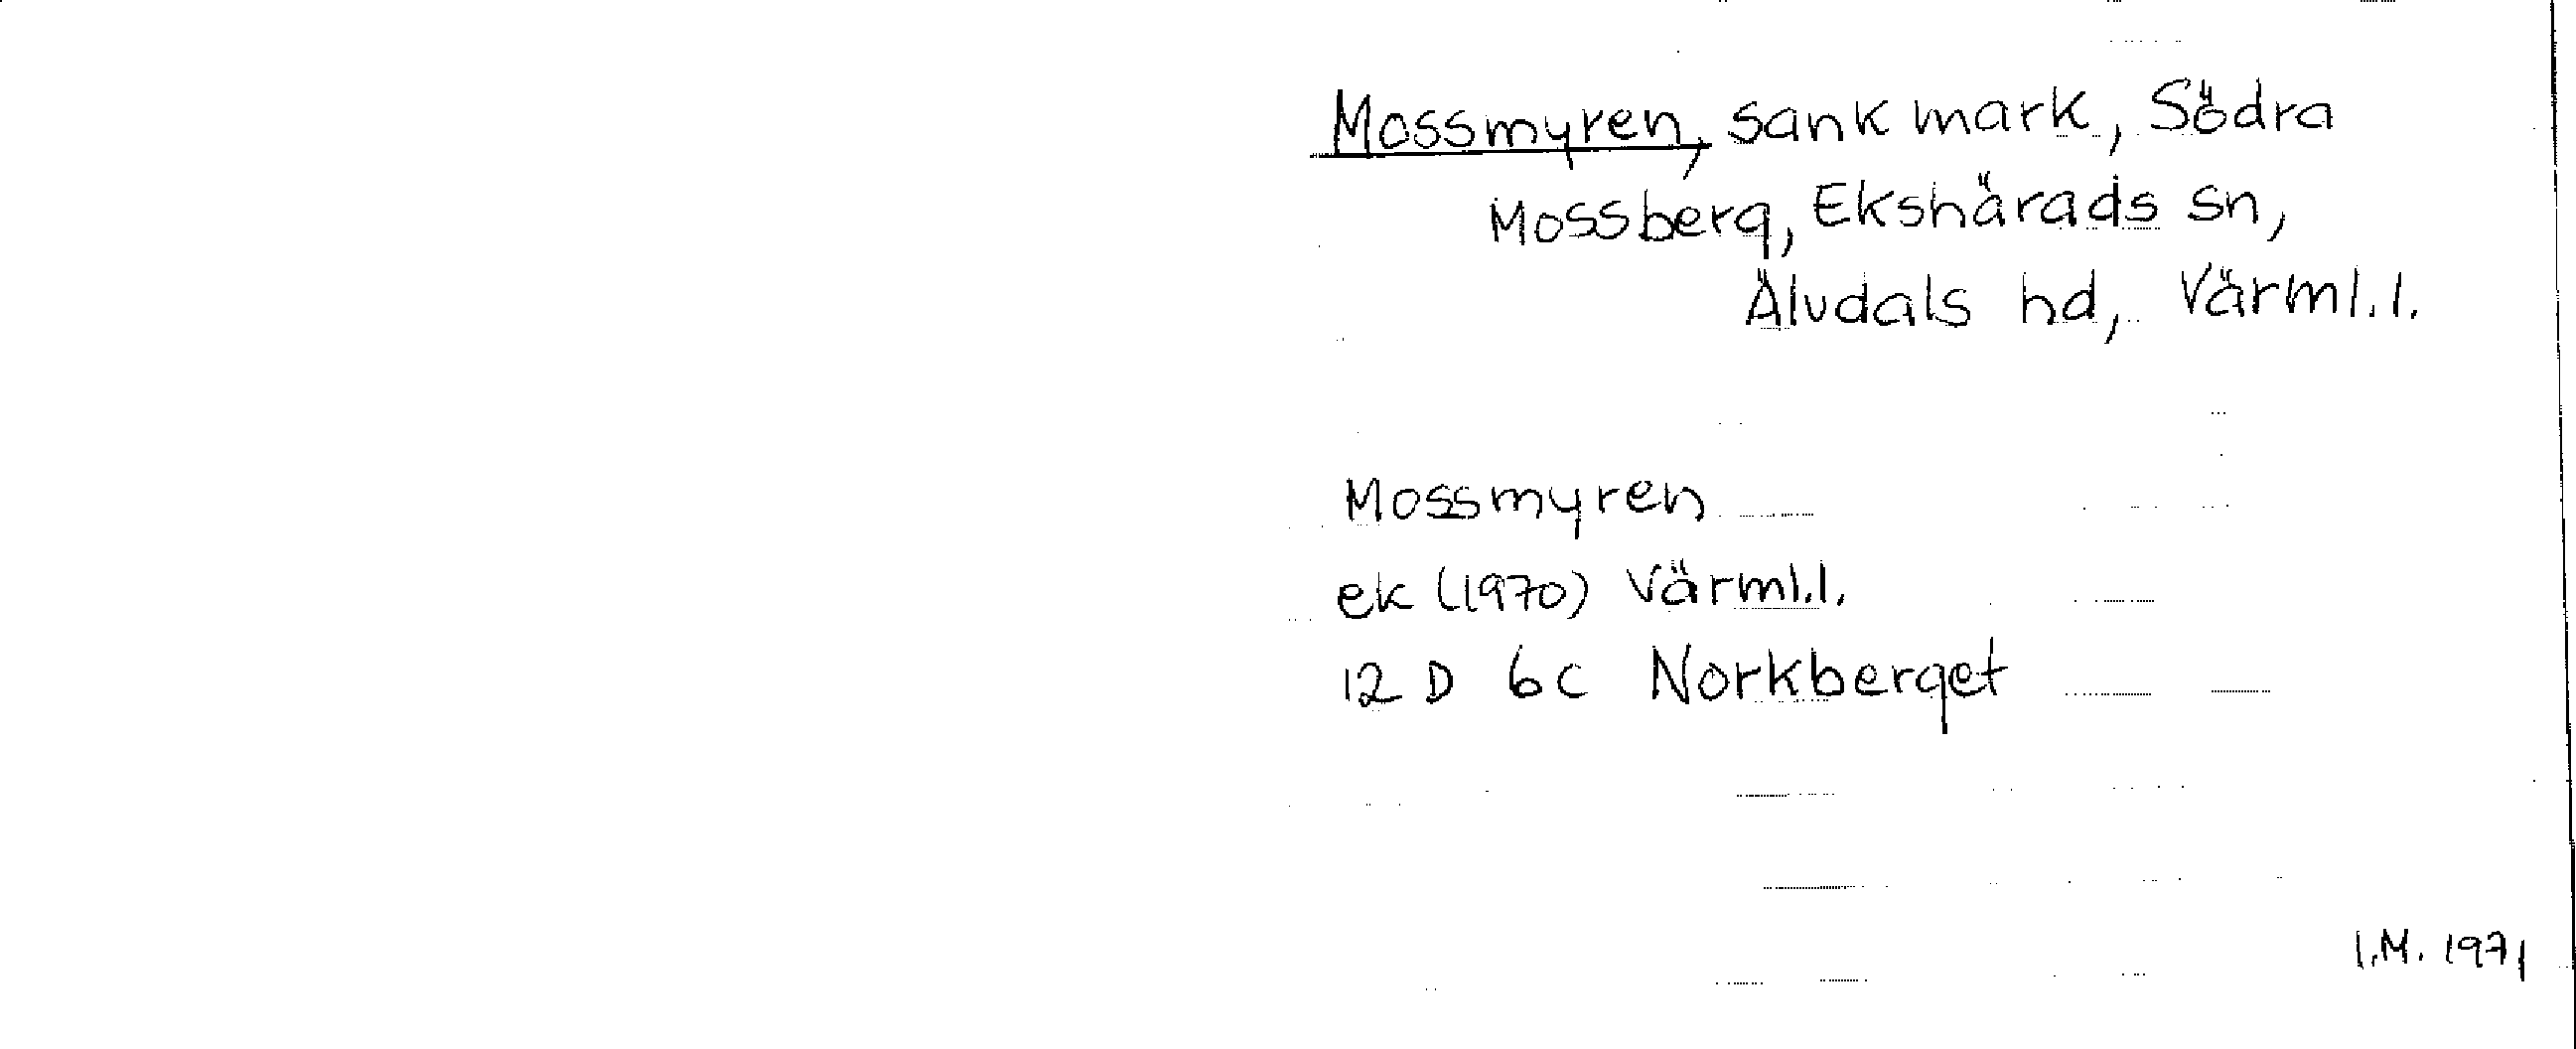 Mossmyren, sank mark, Södra
Mossberg, Ekshärads sn,
Älvdals hd, Värml.l.
Mossmyren
ek (1970) Värml.l.
12 D 6c Norkberget
I.M. 1971